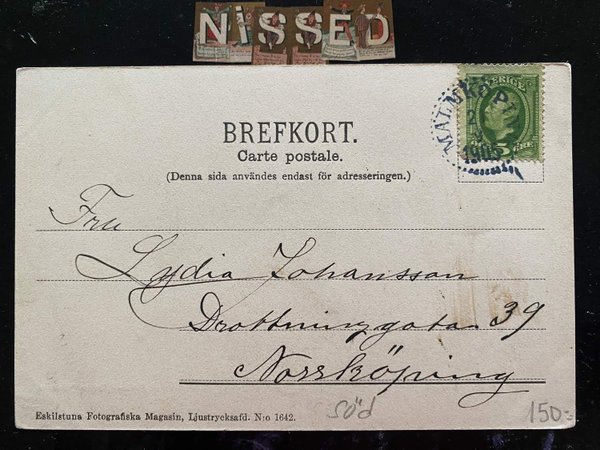 NiSSED
BREFKORT.
Carte postale.
(Denna sida användes endast för adresseringen.)
SVERIGE
5 ÖRE
MALMKÖPING
2
1903
Fru
Lydia Johansson
Drottninggatan 39
Norrköping
Eskilstuna Fotografiska Magasin, Ljustrycksafd. N:o 1642.
söd
150:-